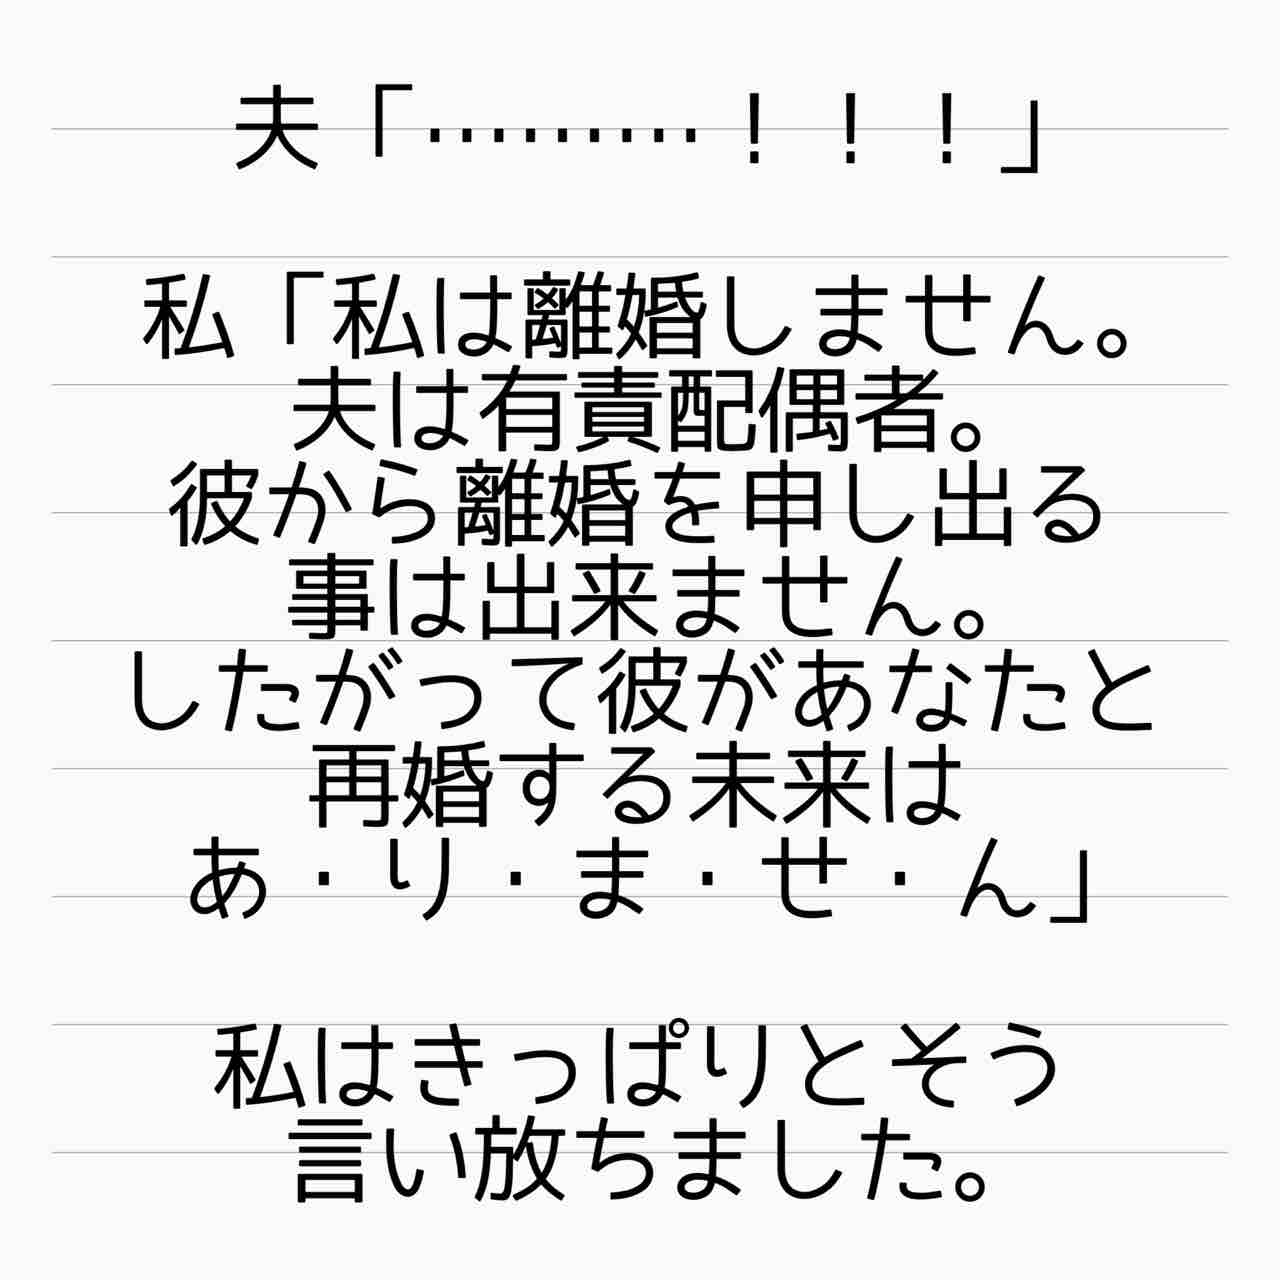 夫「………！！！」
私「私は離婚しません。
夫は有責配偶者。
彼から離婚を申し出る
事は出来ません。
したがって彼があなたと
再婚する未来は
あ・り・ま・せ・ん」
私はきっぱりとそう
言い放ちました。